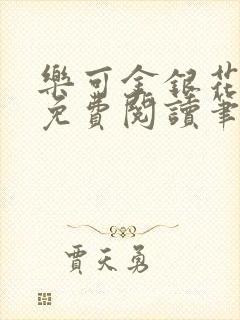 樂可金銀花
免費閱讀筆
賈天勇